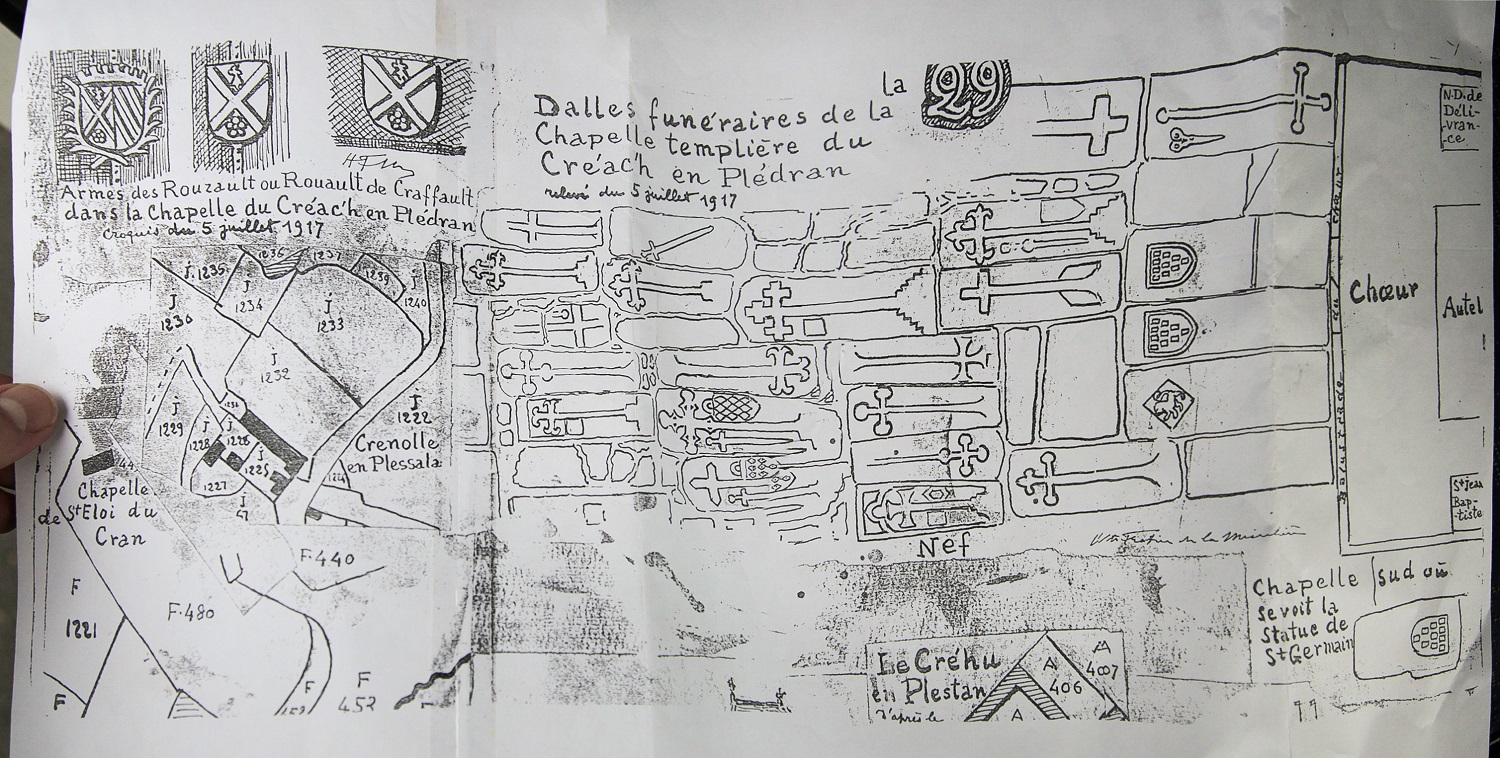 la 29
Dalles funéraires de la
Chapelle templière du
Créac'h en Plédran
relevé du 5 juillet 1917
Armes des Rouzault ou Rouault de Craffault
dans la Chapelle du Créac'h en Plédran
Croquis du 5 juillet 1917
J. 1235
1236
1237
1239
J
1240
J
1230
J
1234
J
1233
J
1232
J
1229
J
1228
J
1225
1227
J
47
J
1222
Crenolle
en Plessala
44
Chapelle
de St Eloi du
Cran
F
1221
F
F.480
F.440
F
F
452
N.D. de
Déli-
vran-
-ce.
Chœur
Autel
Balustrade
St Jean
Bap-
-tiste
Nef
Chapelle sud où
se voit la
Statue de
St Germain
Le Créhu
en Plestan
d'après le
A
406
A
4007
A